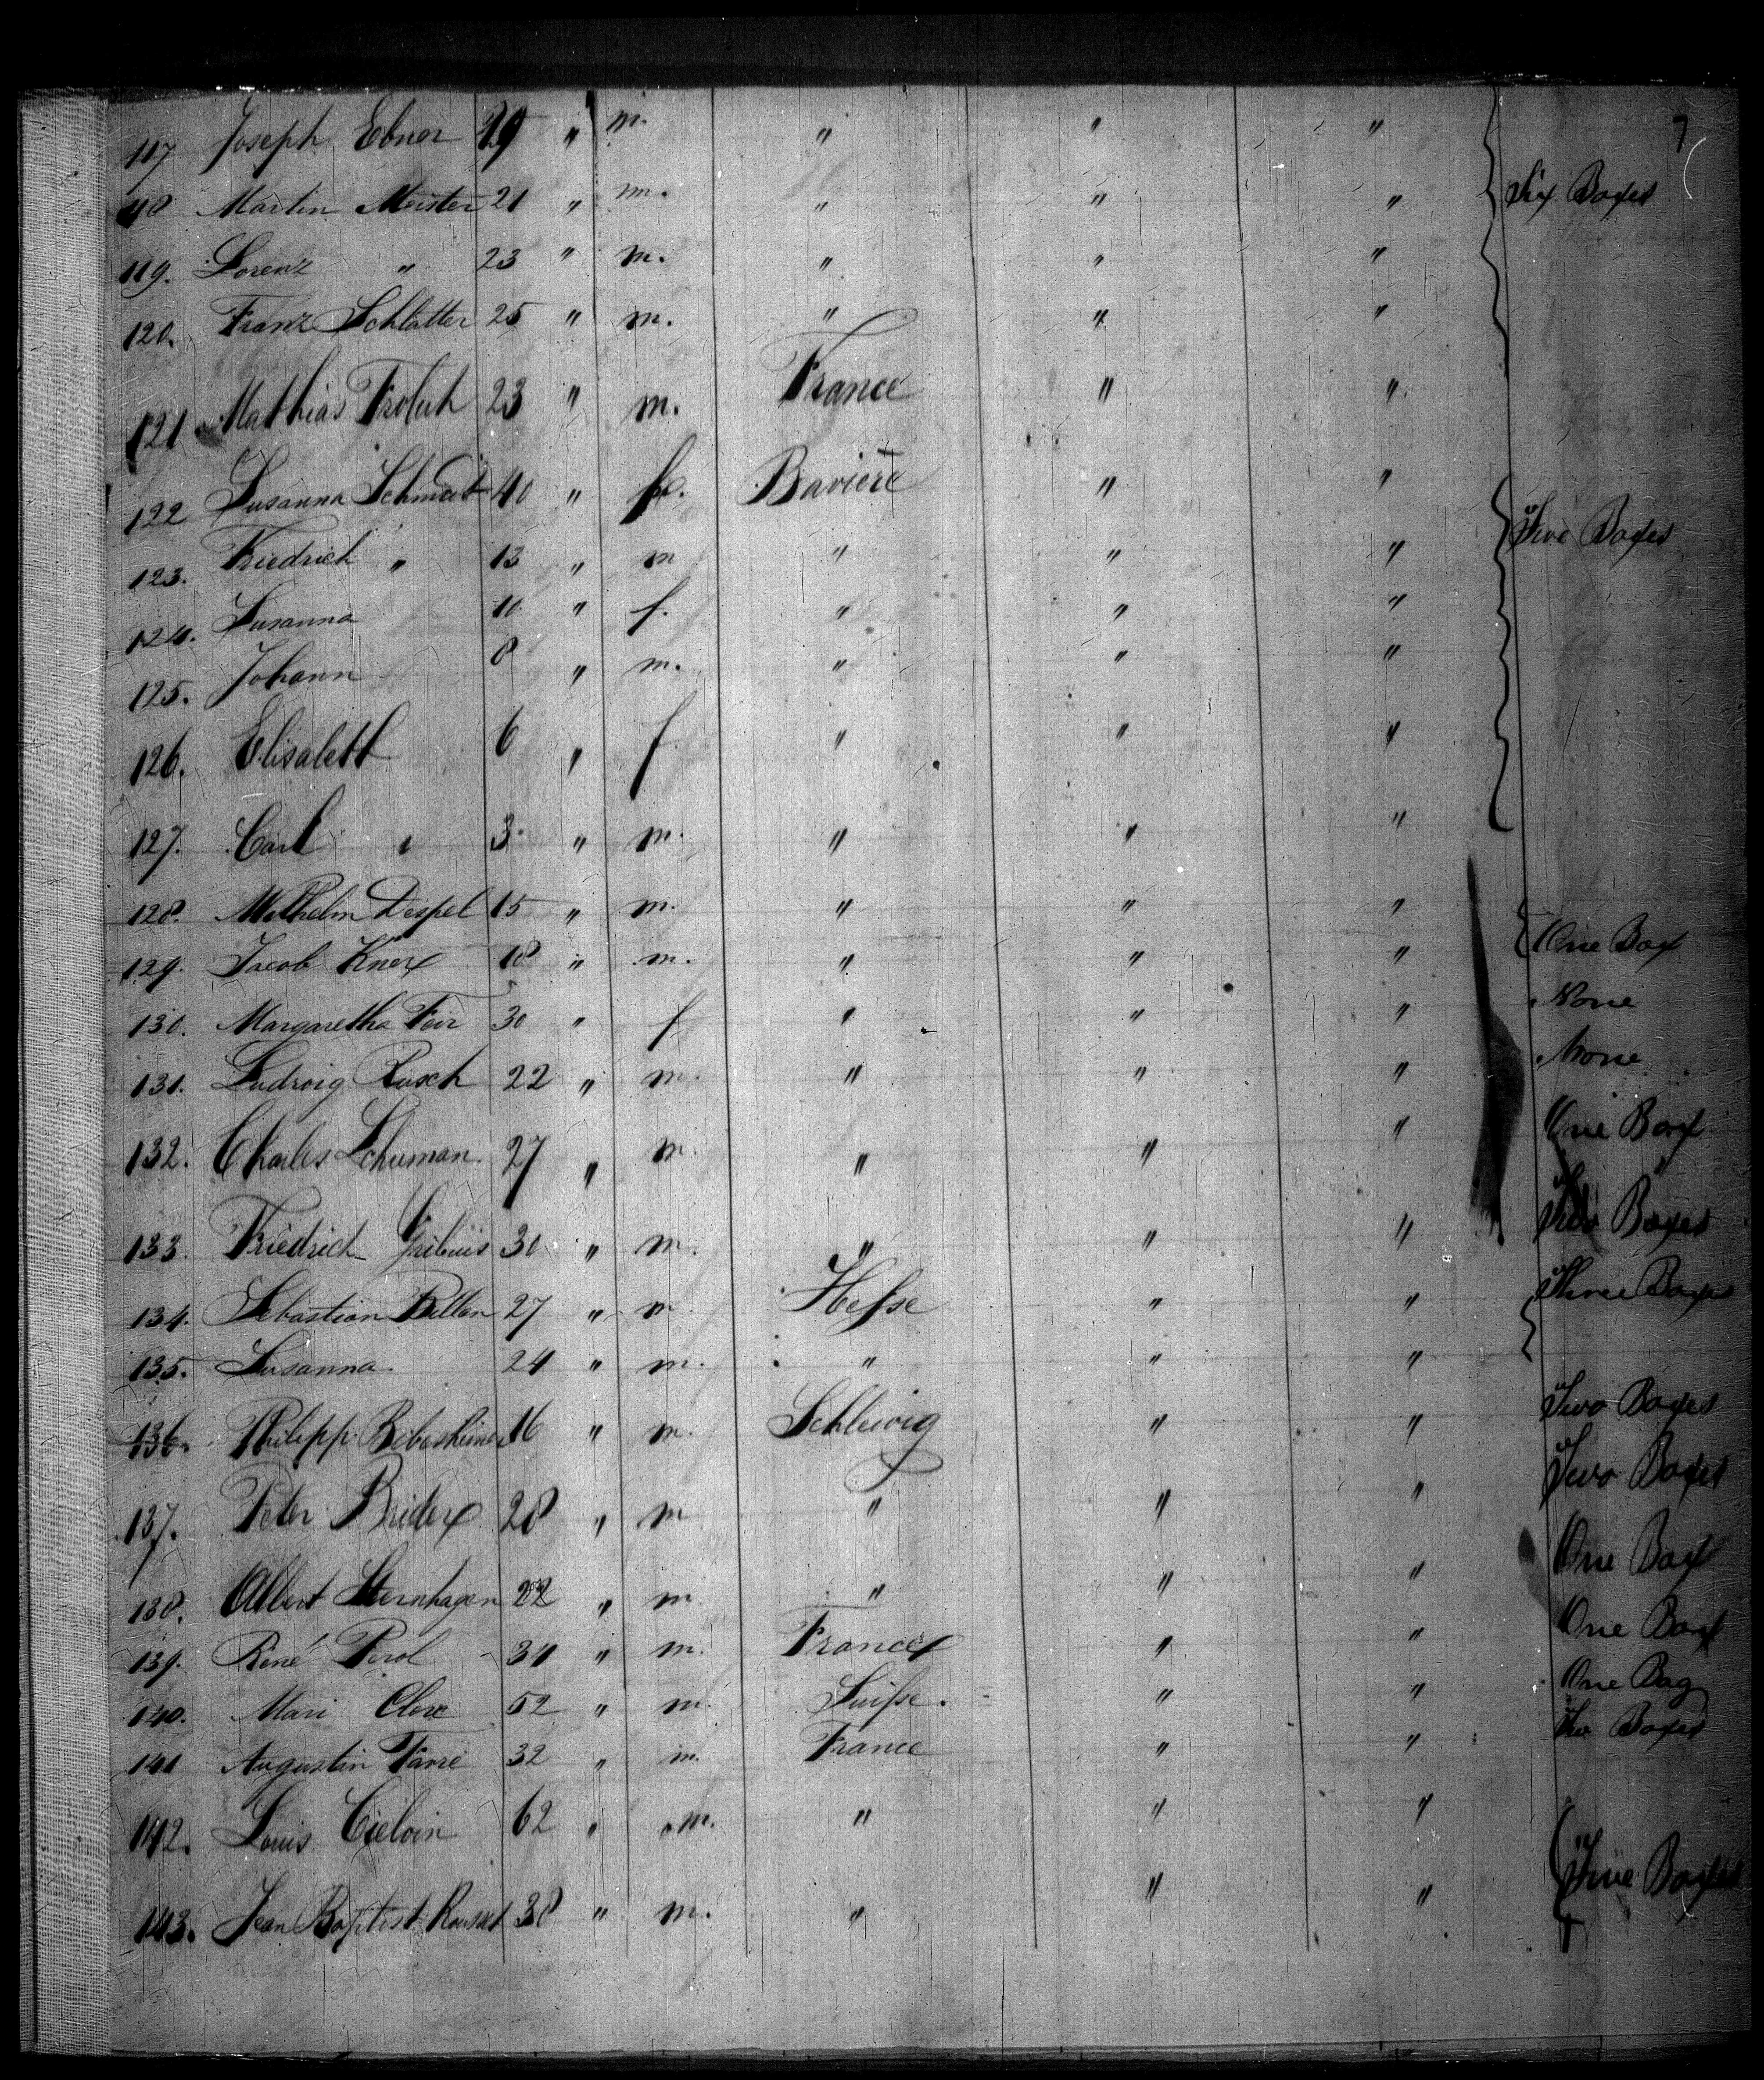 7
117 Joseph Ebner 29 " m. " " "
118 Martin Meister 21 " m. " " " Six Boxes
119. Lorenz " 23 " m. " " "
120. Franz Schlatter 25 " m. " " "
121. Mathias 23 " m. France " "
122 Susanna Schmidt 40 " f. Baviere " "
123. Friedrich " 13 " m " " " Five Boxes
124. Susanna 10 " f. " " "
125. Johann 8 " m. " " "
126. Elisabeth 6 " f " " "
127. Carl " 3 " m. " " "
128. Wilhelm Despel 15 " m. " " "
129. Jacob Knerx 18 " m. " " " One Box
130. Margaretha 30 " f " " " None
131. Ludwig Rusch 22 " m. " " " None
132. Charles Schuman 27 " m. " " " One Box
133. Friedrich 30 " m. " " " Two Boxes
134. Sebastian 27 " m Hesse " " Three Boxes
135. Susanna 24 " m. " " "
136. Philipp 16 " m. Schlewig " " Two Boxes
137. Peter Briderx 28 " m " " " Two Boxes
138. Albert Sternhagen 22 " m " " " One Box
139. René Perol 34 " m. France " " One Box
140. Mari Clerc 52 " m. Suisse. " " One Bag
141 Augustin 32 " m. France " " Two Boxes
142. Louis 62 " m. " " "
143. Jean Baptist Rousset 38 " m. " " " Five Boxes